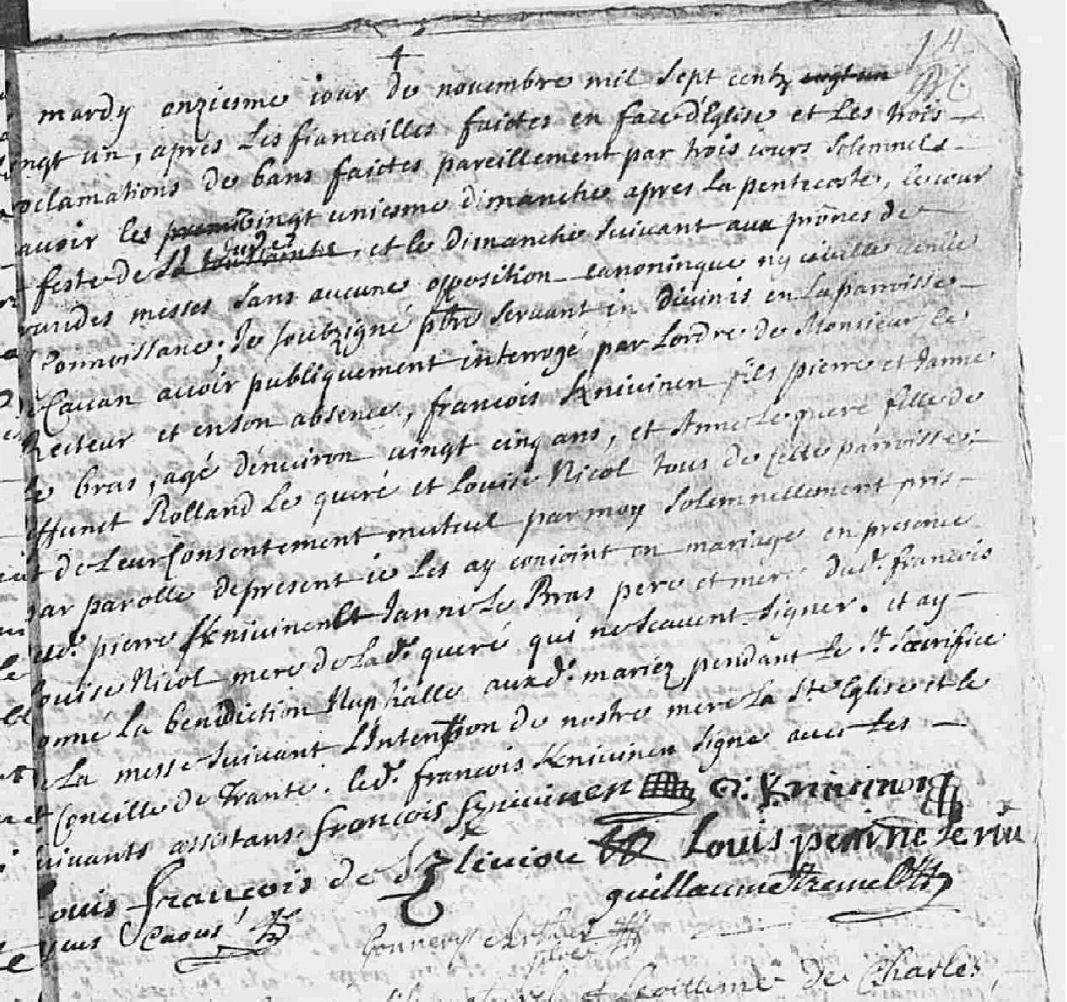 14
mardy onziesme iour de novembre mil sept centz vingt un
ingt un, apres les fiancailles faictes en face d'Eglise et les trois
oclamations de bans faictes pareillement par trois iours solemnels
avoir les premie vingt uniesme dimanche apres la pentecoste, le iour
feste de la toussainte, et le dimanche suivant aux prônes de
randes messes sans aucune opposition canoninque ny civille venüe
Connoissance; Je soubzigné pbre servant in divinis en la parroisse
Cauan avoir publiquement interrogé par l'ordre de Monsieur le
Recteur et en son absence, francois Knivinen fils pierre et Janne
le bras, agé d'environ vingt cinq ans, et Anne Le queré fille de
deffunct Rolland Le queré et Louise Nicol tous de cette parroisse;
de Leur Consentement mutuel par moy solemnellement pris
par parolle de present ie les ay conioint en mariage en presence
pierre Knivinen et Janne Le Bras pere et mere dud. francois
Louise Nicol mere de lad. queré qui ne scavent signer. et ay
onné la benediction Nuptialle auxd. mariez pendant le st. sacrifice
La messe suivant L'Intention de nostre mere la ste Eglise et le
Concille de Trante. led. francois Knivinen signe avec les
suivants assistans. francois Knivinen G: Knivinen
Louis francois de Louis pearine le riu
yves Caoüs guillaume tremel
de Charles